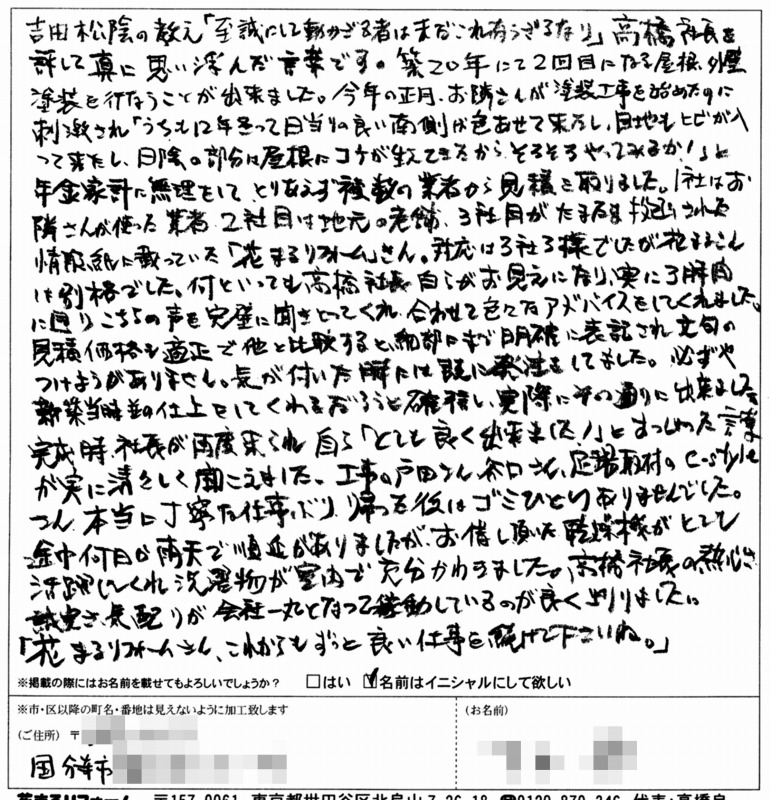 吉田松陰の教え「至誠にして動かざる者はまだこれ有らざるなり」高橋社長を
評して真に思い浮んだ言葉です。築20年にて2回目になる屋根、外壁
塗装を行なうことが出来ました。今年の正月、お隣さんが塗装工事を始めたのに
刺激され「うちも12年経って日当りの良い南側が色あせて来たし、目地もヒビが入
って来たし、日陰の部分に屋根にコケが生えてきたから、そろそろやってみるか!」と
年金家計に無理をして、とりあえず複数の業者から見積を取りました。1社はお
隣さんが使った業者、2社目は地元の老舗、3社目がたまたま投函された
情報紙に載っていた「花まるリフォーム」さん。対応は3社3様でしたが花まるさん
は別格でした。何といっても高橋社長自らがお見えになり、実に3時間
に渡りこちらの声を完璧に聞きとってくれ、合わせて色々なアドバイスをしてくれました。
見積価格も適正で他と比較すると細部にまで明確に表記され文句の
つけようがありません。気が付いた時には既に発注をしてました。必ずや
新築当時並の仕上をしてくれるだろうと確信し、実際にその通りに出来ました。
完成時、社長が再度来られ自ら「とても良く出来ました!」とおっしゃった言葉
が実に清々しく聞こえました。工事の戸田さん、谷口さん、足場取材のC-style
さん、本当に丁寧な仕事ぶり、帰った後はゴミひとつありませんでした。
途中何日か雨天で順延がありましたが、お借し頂いた乾燥機がとても
活躍してくれ洗濯物が室内で充分かわきました。高橋社長の熱心さ
誠実さ、気配りが会社一丸となって稼動しているのが良く判りました。
「花まるリフォームさん、これからもずっと良い仕事を続けて下さいね。」
※掲載の際にはお名前を載せてもよろしいでしょうか? □はい ☑名前はイニシャルにして欲しい
※市・区以降の町名・番地は見えないように加工致します
(ご住所) 〒
(お名前)
国分寺市
花まるリフォーム 〒157-0061 東京都世田谷区北烏山7-26-18 ☎0120-870-246 代表:高橋良